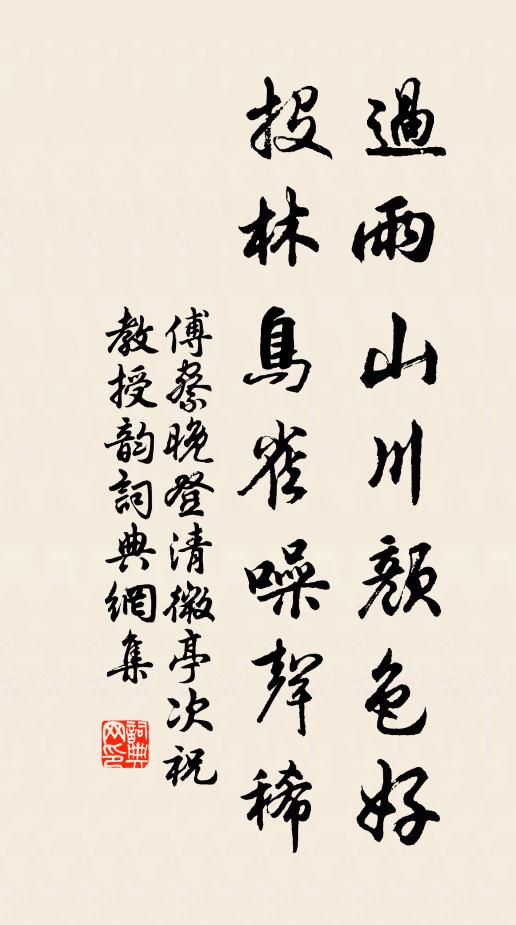 過雨山川顏色好
投林鳥雀噪聲稀
傅察晚登清微亭次祝
教授韵詞典網集
詞典
网印